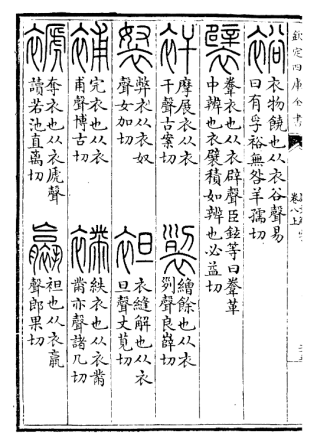 欽定四庫全書
卷八上
裕
衣物饒也从衣谷聲易
曰有孚裕無咎羊孺切
襞
韏衣也从衣辟聲臣鉉等曰韏革
中辨也衣襞積如辨也必益切
衦
摩展衣从衣
干聲古案切
裂
繒餘也从衣
𠛱聲良辥切
袈
弊衣从衣奴
聲女加切
袒
衣縫解也从衣
旦聲丈莧切
補
完衣也从衣
甫聲博古切
襧
紩衣也从衣黹
黹亦聲諸几切
褫
奪衣也从衣虒聲
讀若池直离切
臝
袒也从衣𣎆
聲郎果切